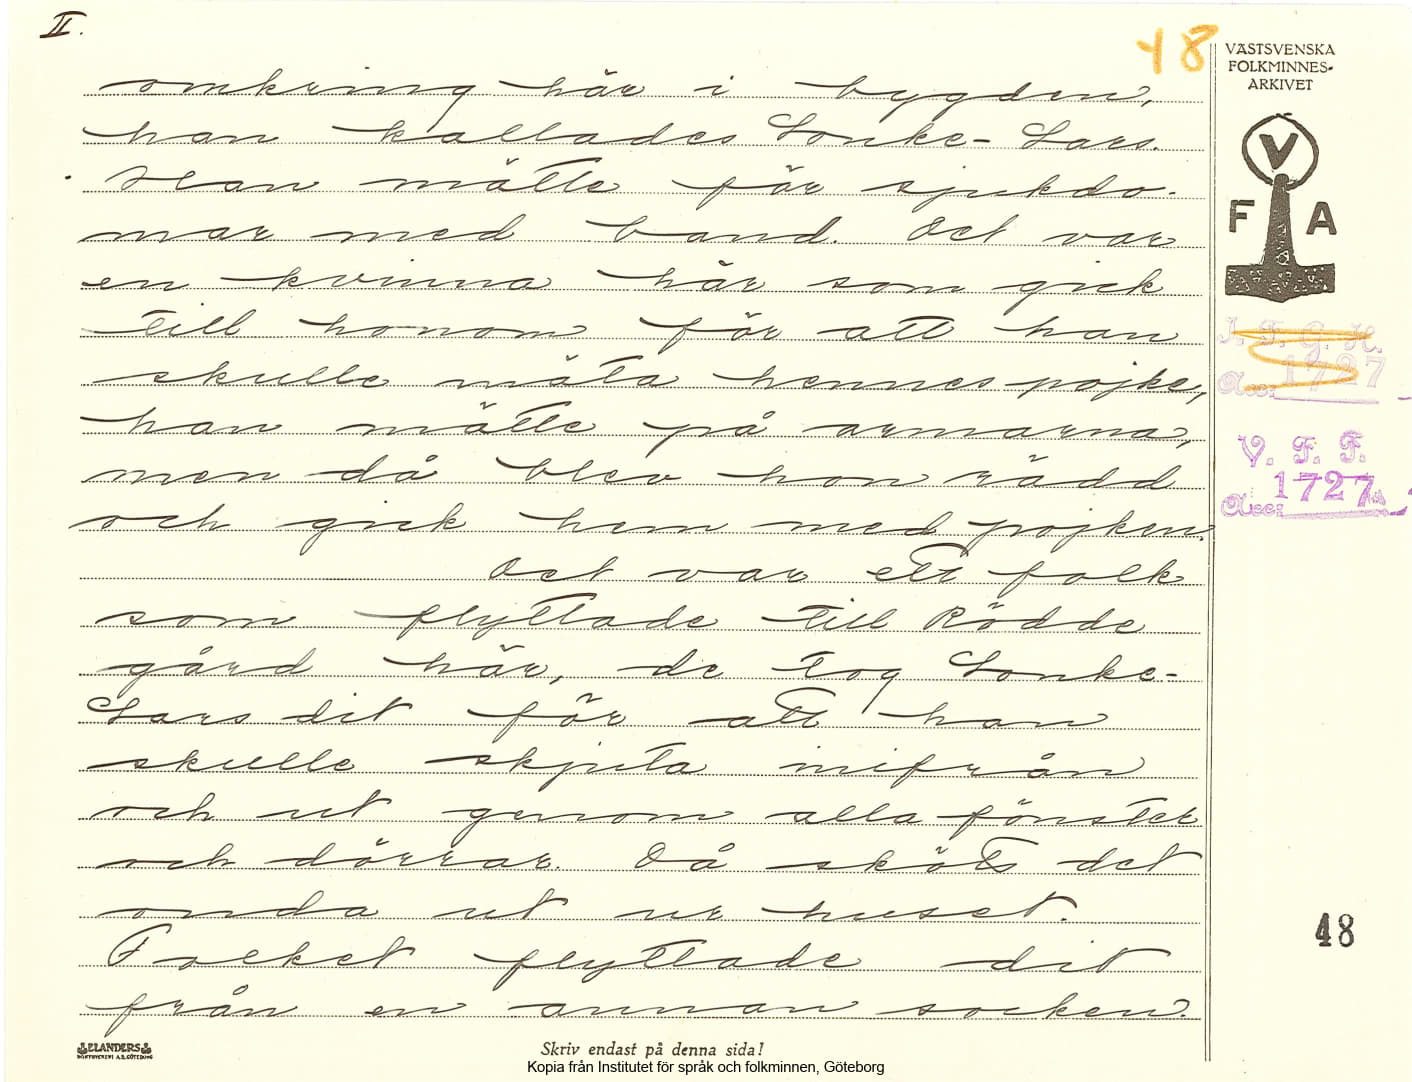 II.
48
VÄSTSVENSKA
FOLKMINNES-
ARKIVET
V
F A
omkring här i bygden,
han kallades Lonke-Lars.
Han mätte för sjukdo-
mar med band. Det var
en kvinna här som gick
till honom för att han
skulle mäta hennes pojke,
han mätte på armarna,
men då blev hon rädd
och gick hem med pojken.
Det var ett folk
som flyttade till Rödde
gård här, de tog Lonke-
Lars dit för att han
skulle skjuta inifrån
och ut genom alla fönster
och dörrar. Då sköts det
onda ut ur huset.
Folket flyttade dit
från en annan socken.
I. F. G. H.
Acc. 1727
V. F. F.
Acc: 1727
48
ELANDERS
Skriv endast på denna sida!
Kopia från Institutet för språk och folkminnen, Göteborg